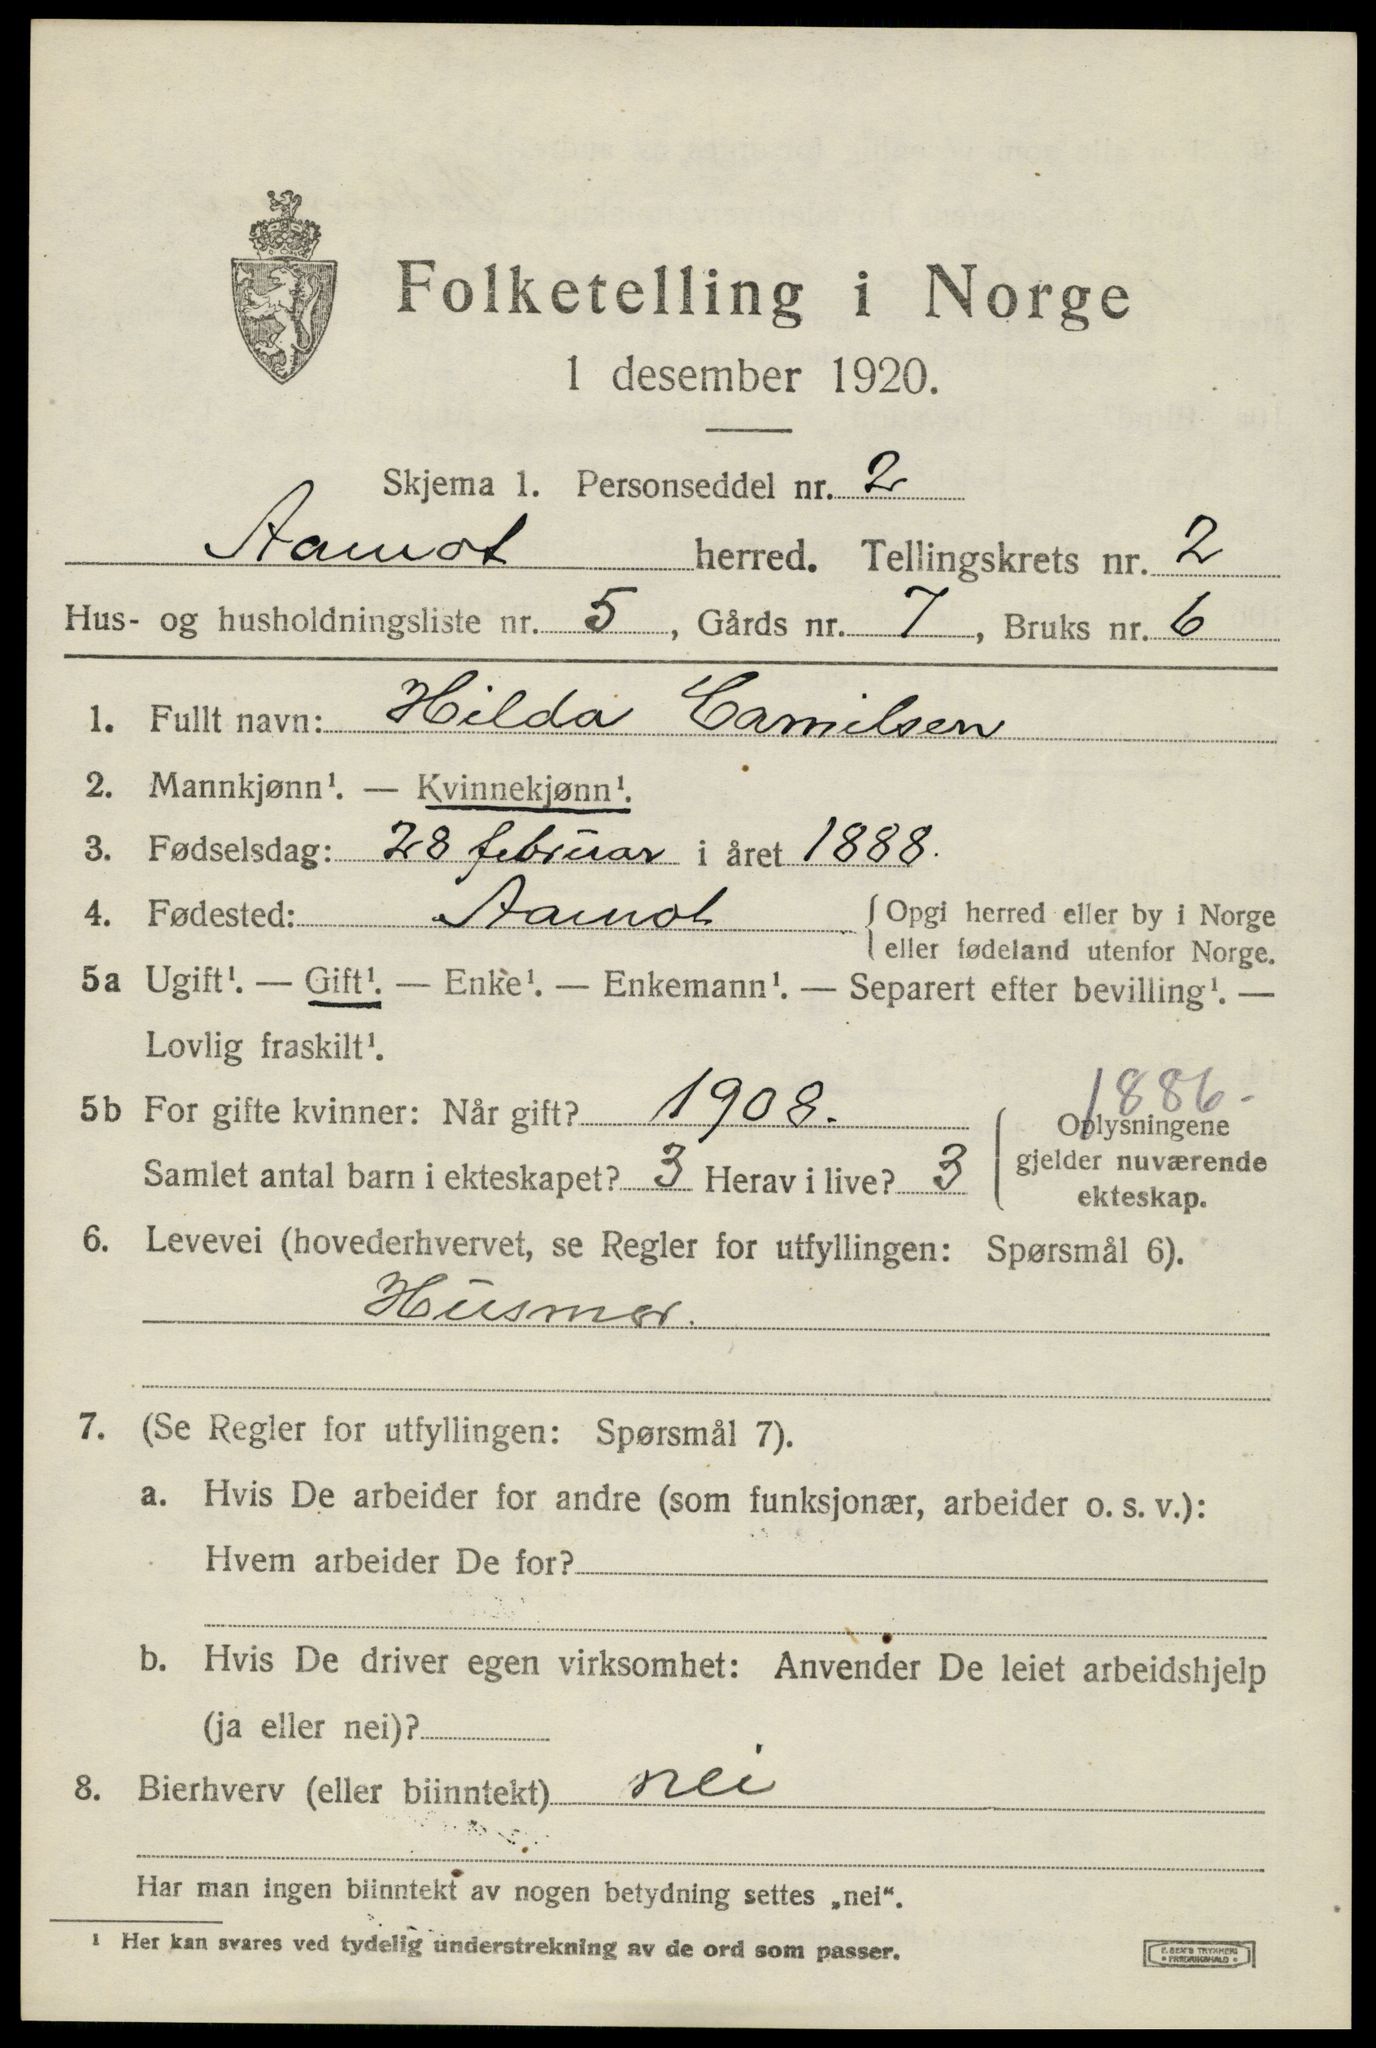 Folketelling i Norge
1 desember 1920.
Skjema 1. Personseddel nr. 2
Aamot herred. Tellingskrets nr. 2
Hus- og husholdningsliste nr. 5, Gårds nr. 7, Bruks nr. 6
1. Fullt navn: Hilda Camilsen
2. Mannkjønn¹. — Kvinnekjønn¹.
3. Fødselsdag: 28 februar i året 1888.
4. Fødested: Aamot {Opgi herred eller by i Norge
eller fødeland utenfor Norge.
5a Ugift¹. — Gift¹. — Enke¹. — Enkemann¹. — Separert efter bevilling¹. —
Lovlig fraskilt¹.
1886-
5b For gifte kvinner: Når gift? 1908. Oplysningene
gjelder nuværende
Samlet antal barn i ekteskapet? 3 Herav i live? 3 ekteskap.
6. Levevei (hovederhvervet, se Regler for utfyllingen: Spørsmål 6).
Husmor.
7. (Se Regler for utfyllingen: Spørsmål 7).
a. Hvis De arbeider for andre (som funksjonær, arbeider o. s. v.):
Hvem arbeider De for?
b. Hvis De driver egen virksomhet: Anvender De leiet arbeidshjelp
(ja eller nei)?
8. Bierhverv (eller biinntekt) nei
Har man ingen biinntekt av nogen betydning settes „nei“.
¹ Her kan svares ved tydelig understrekning av de ord som passer.
TRYKKERI
FREDRIKSHALD